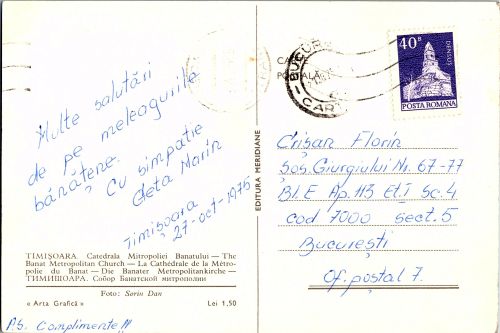 Multe salutări
de pe meleagurile
bănățene.
Cu simpatie
Geta Marin
Timișoara
27-oct-1975
TIMIȘOARA. Catedrala Mitropoliei Banatului — The
Banat Metropolitan Church — La Cathédrale de la Métro-
polie du Banat — Die Banater Metropolitankirche —
ТИМИШОАРА. Собор Банатской митрополии
Foto: Sorin Dan
« Arta Grafică »
Lei 1,50
Ps. Complimente !!!
EDITURA MERIDIANE
BUCUR
CART
40 B
DENSUȘ
POSTA ROMANA
Crișan Florin
Șos. Giurgiului Nr. 67-77
Bl. E Ap. 113 et. I Sc. 4
cod 7000 sect. 5
București
Of. poștal 7.